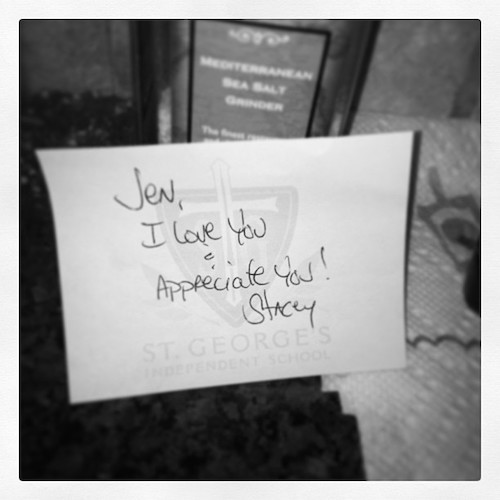 MEDITERRANEAN
SEA SALT
GRINDER
The finest
Jen,
I Love You
&
Appreciate You!
Stacey
ST. GEORGE'S
INDEPENDENT SCHOOL